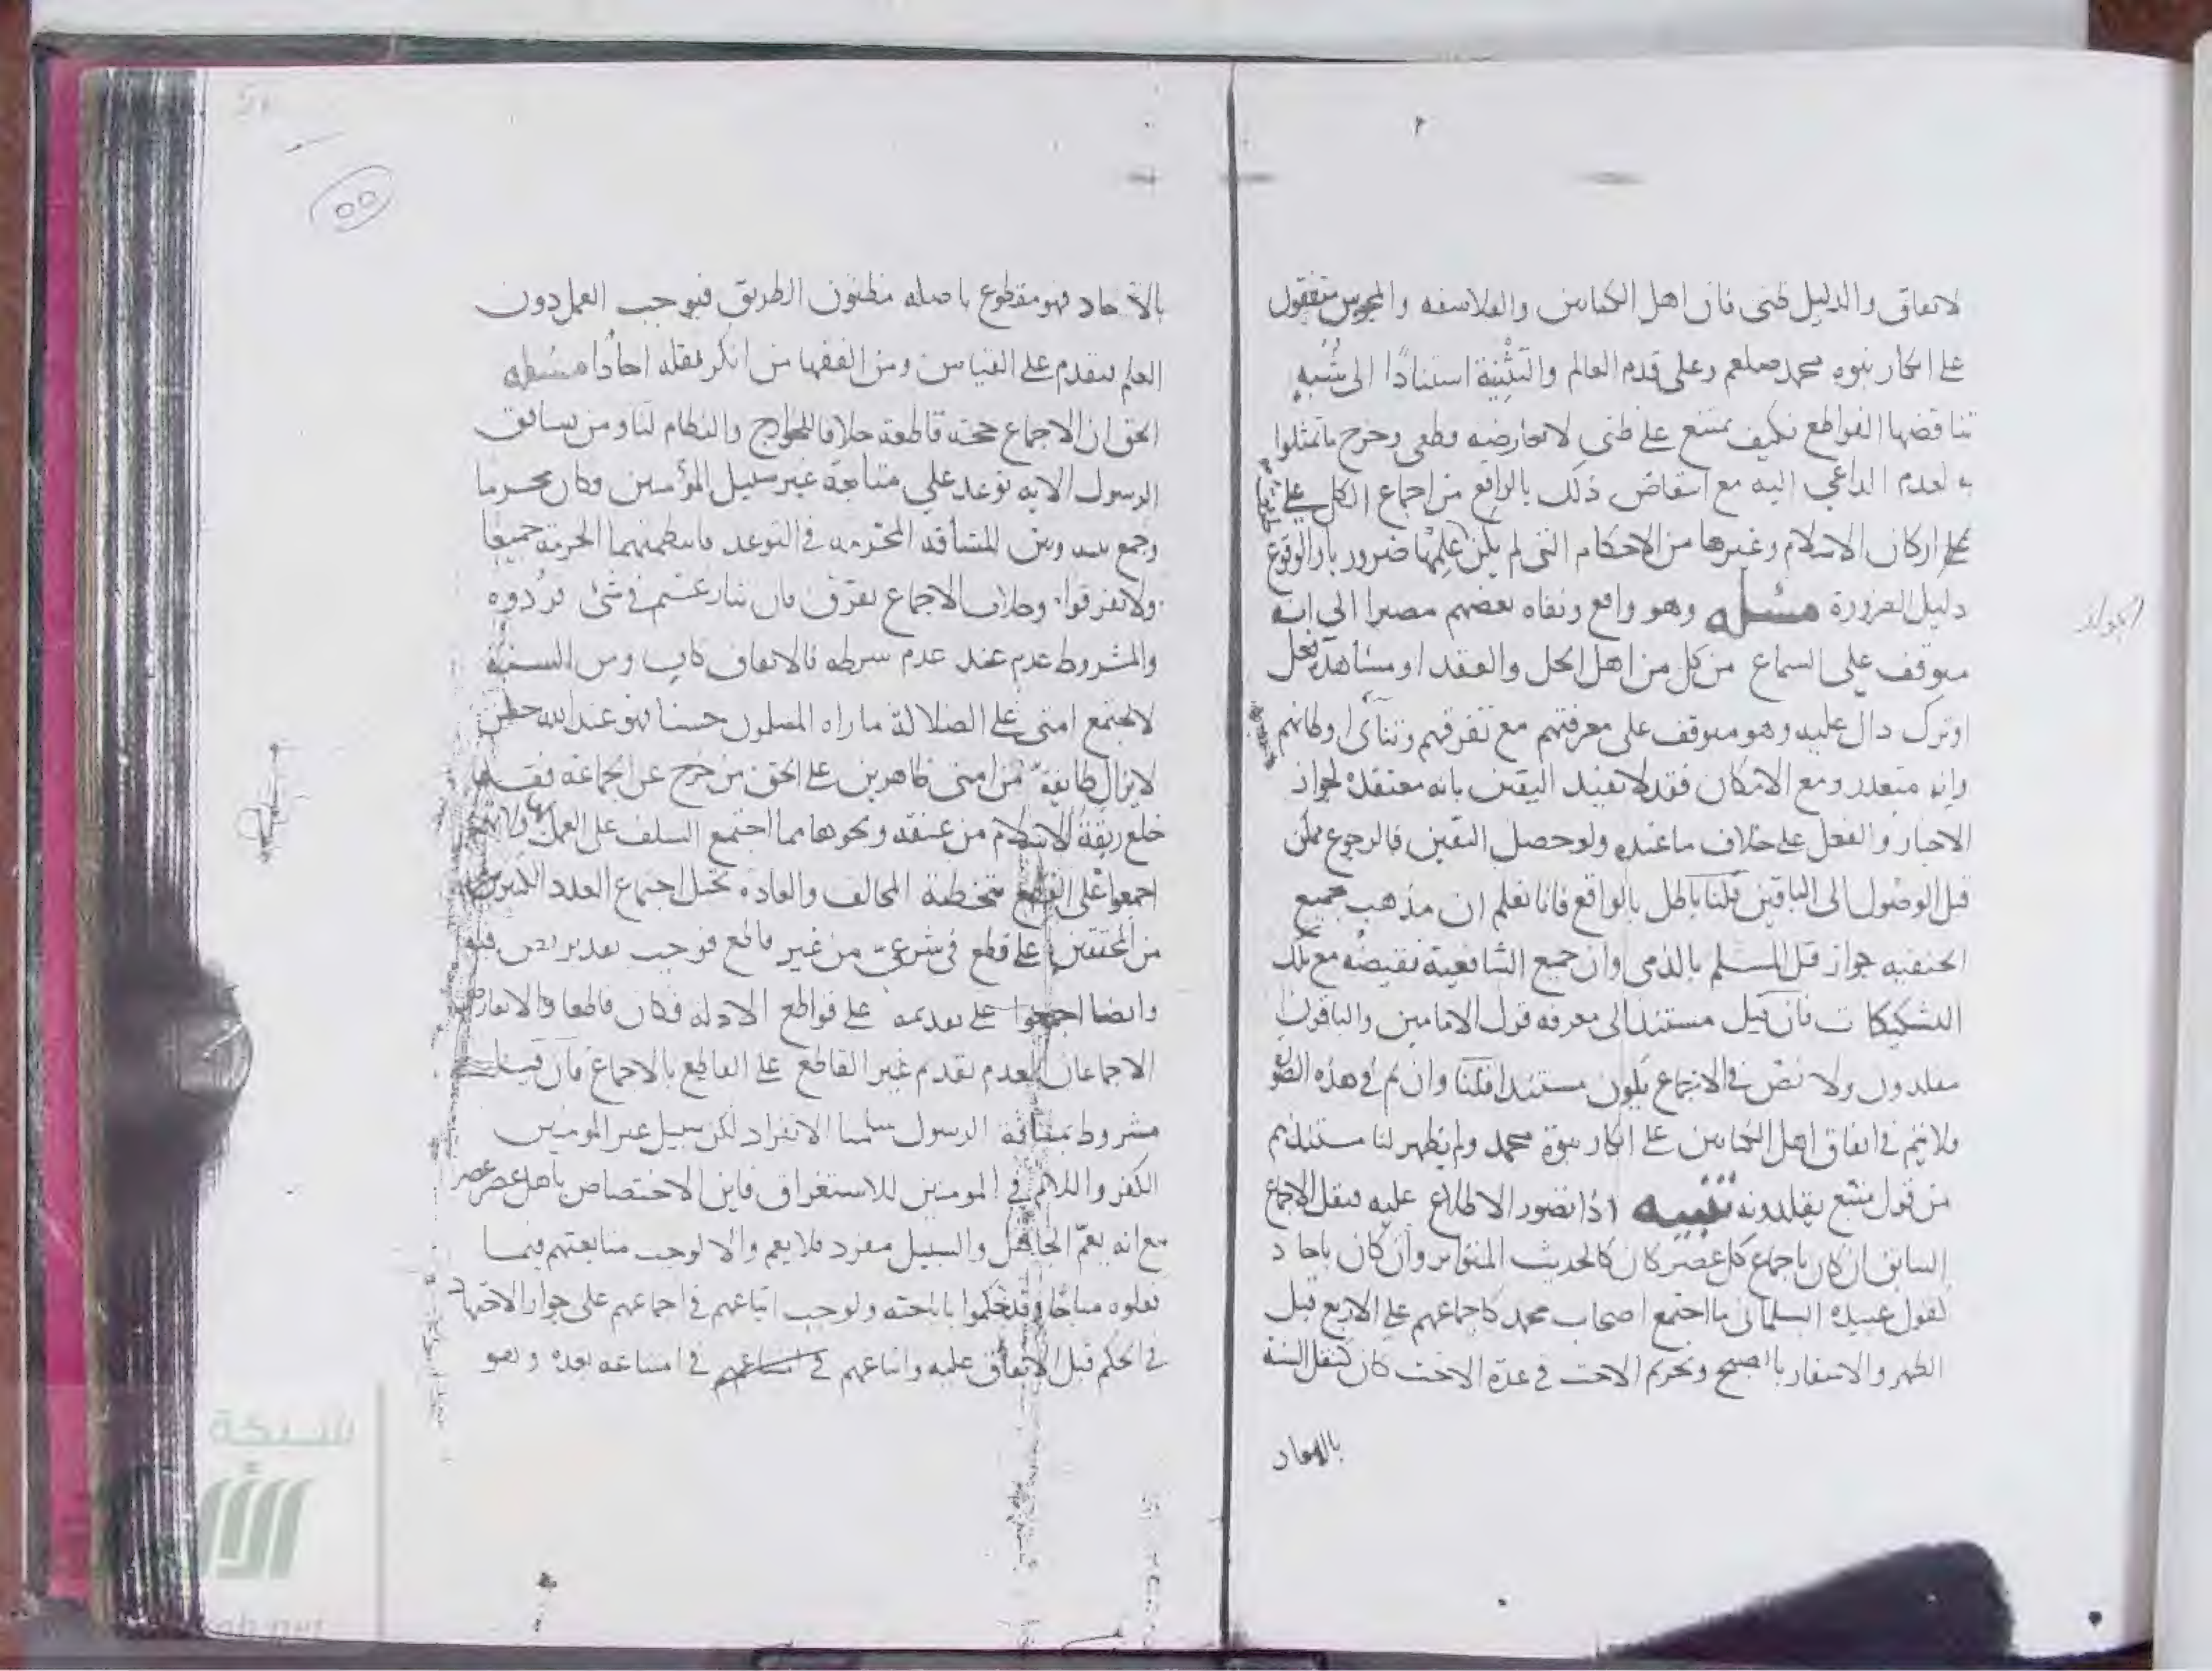 لاتفاق والدليل ظنى فان اهل الكتابين والفلاسفه والمجوس متفقون
على انكار نبوه محمد صلعم وعلى قدم العالم والتثنية استنادًا الى شُبه
تناقضها القواطع فكيف يمتنع على ظنى لا تعارضه قطعى وخرج ما تمثلوا
به لعدم الداعي اليه مع انتقاض ذلك بالواقع من اجماع الكل على
على اركان الاسلام وغيرها من الاحكام التى لم يكن علمها ضرور بار الوقوع
دليل الضرورة مسئله وهو واقع ونفاه بعضهم مصيرا الى انه
متوقف على السماع من كل من اهل الحل والعقد او مشاهدة فعل
او ترك دال عليه وهو متوقف على معرفتهم مع تفرقهم وتنائى اوطانهم
وانه متعذر ومع الامكان فقد لا تفيد اليقين بانه معتقده لجواز
الاخبار والفعل على خلاف ما عنده ولو حصل اليقين فالرجوع ممكن
قبل الوصول الى الباقين قلنا باطل بالواقع فانا نعلم ان مذهب جميع
الحنفيه جواز قتل المسلم بالذمى وان جميع الشافعية نقيضه مع تلك
التشكيكات فان قيل مستند الى معرفه قول الامامين والباقون
مقلدون ولا نص فى الاجماع يكون مستندا قلنا وان تم فى هذه الصور
فلا يتم فى اتفاق اهل الكتابين على انكار نبوة محمد ولم يظهر لنا مستندهم
من قول متبع يقلدونه تنبيه اذا تصور الاطلاع عليه فنقل الاجماع
السابق ان كان باجماع كل عصر كان كالحديث المتواتر وان كان باحاد
كقول عبيدة السلمانى ما اجتمع اصحاب محمد كاجماعهم على الاربع قبل
الظهر والاسفار بالصبح وتحريم الاخت فى عدة الاخت كان كنقل السنة
بالاحاد
بالآحاد فهو مقطوع باصله مظنون الطريق فيوجب العمل دون
العلم فيتقدم على القياس ومن الفقها من انكر نقله احادا مسئله
الحق ان الاجماع حجة قاطعة خلافا للخوارج والنظام لنا ومن يشاقق
الرسول الايه توعد علي متابعة غير سبيل المؤمنين فكان محرما
وجمع بينه وبين المشاقه المحرمه فى التوعد فانتظمتهما الحرمة جميعا
ولا تفرقوا وخلاف الاجماع تفرق فان تنازعتم فى شئ فردوه
والمشروط عدم عند عدم شرطه فالاتفاق كاف ومن السنة
لا تجتمع امتى على الضلالة ما راه المسلمون حسنا فهو عند الله حسن
لا يزال طايفة من امتى ظاهرين على الحق من خرج عن الجماعة فقد
خلع ربقة الاسلام من عنقه ونحوها مما اجتمع السلف على العمل بها
اجمعوا على القطع بتخطئة المخالف والعادة تحيل اجتماع العدد الكثير
من المحققين على قطع فى شرعى من غير قاطع فوجب تقدير نص فيه
وايضا اجمعوا على تقديمه على قواطع الادله فكان قاطعا والا تعارض
الاجماعان لعدم تقدم غير القاطع على القاطع بالاجماع فان قيل
مشروط بمشاقة الرسول سلمنا الانفراد لكن سبيل غير المومنين
الكفر واللام فى المومنين للاستغراق فاين الاختصاص باهل عصر عصر
مع انه يعم الجاهل والسبيل مفرد فلا يعم والا لوجب متابعتهم فيما
فعلوه مباحا وقد حكموا باباحته ولوجب اتباعهم فى اجماعهم على جواز الاجتهاد
فى الحكم قبل الاتفاق عليه واتباعهم فى امتناعه بعده وهو